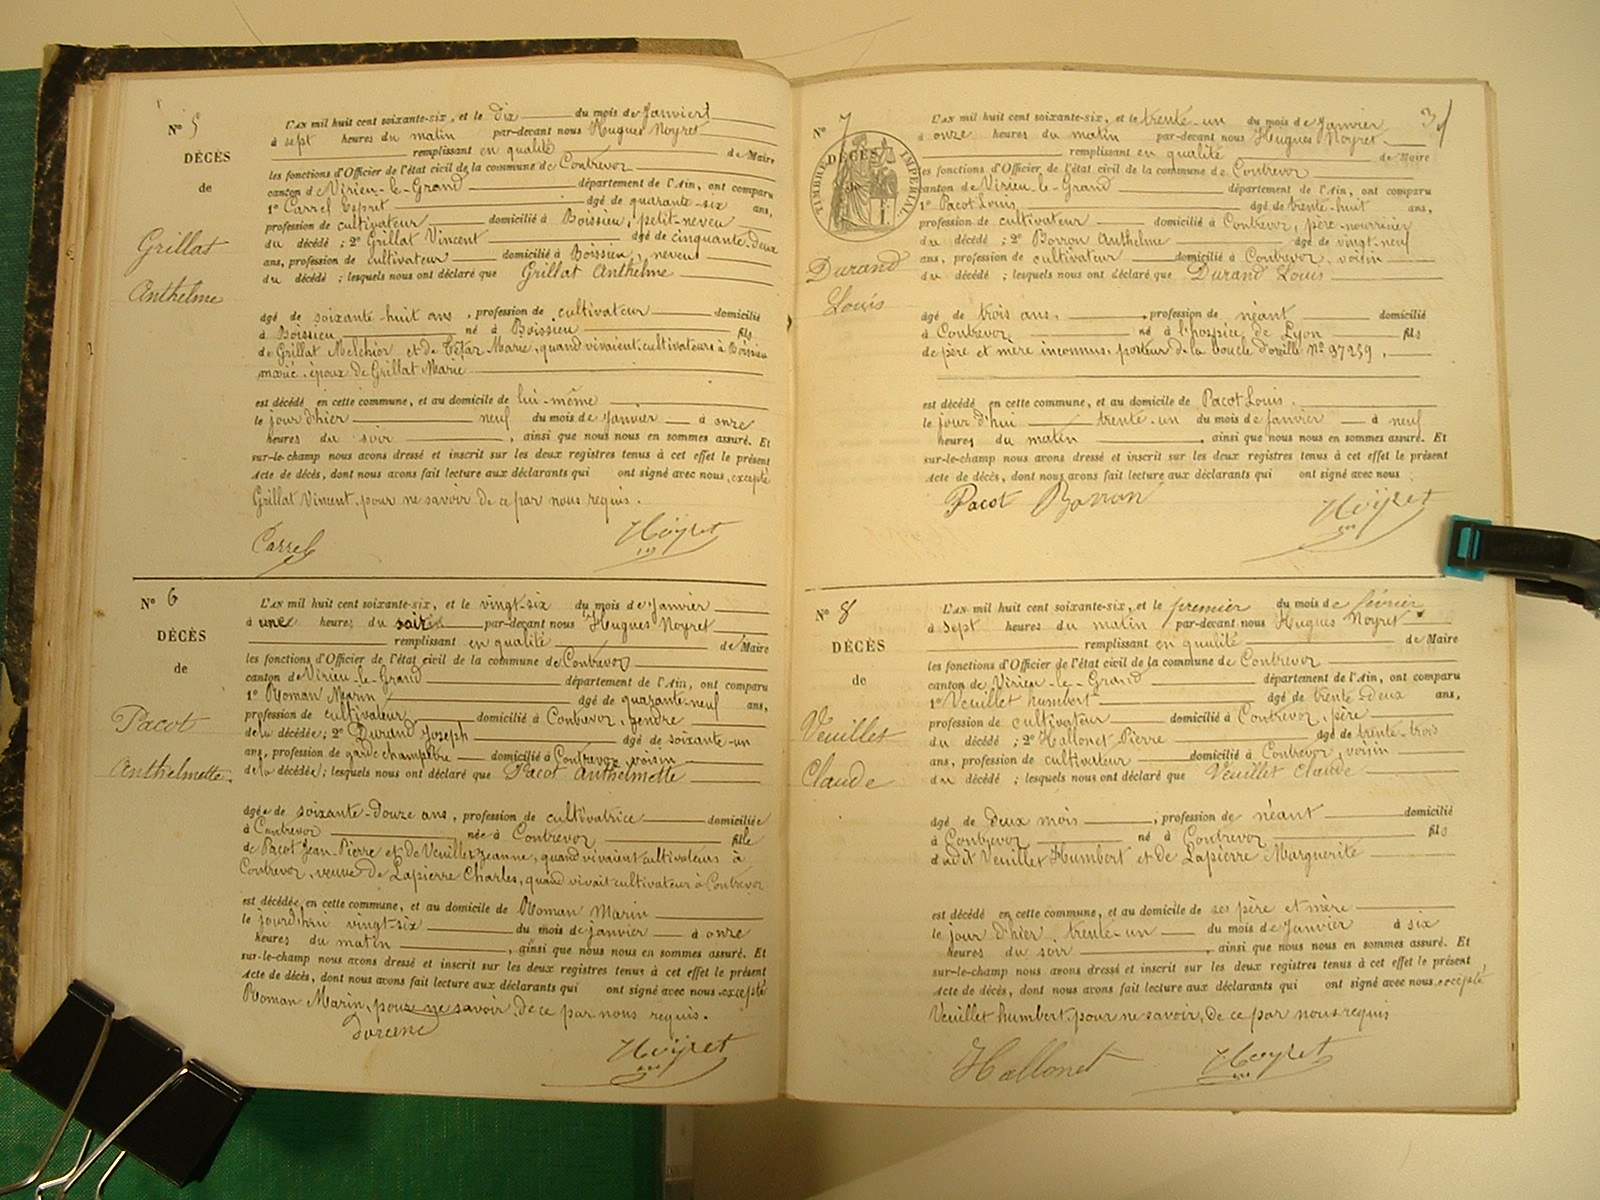 N° 5
DÉCÈS
de
Grillat
Anthelme
L'AN mil huit cent soixante-six, et le dix du mois de Janvier
à sept heures du matin par-devant nous Hugues Noyret
remplissant en qualité de Maire
les fonctions d'Officier de l'état civil de la commune de Contrevoz
canton de Virieu-le-Grand département de l'Ain, ont comparu
1° Carrel Esprit âgé de quarante-six ans,
profession de cultivateur domicilié à Boissieu, petit-neveu
du décédé ; 2° Grillat Vincent âgé de cinquante-deux
ans, profession de cultivateur domicilié à Boissieu, neveu
du décédé ; lesquels nous ont déclaré que Grillat Anthelme
âgé de soixante-huit ans, profession de cultivateur domicilié
à Boissieu né à Boissieu fils
de Grillat Melchior et de Marie, quand vivaient cultivateurs à Boissieu
marié, époux de Grillat Marie
est décédé en cette commune, et au domicile de lui-même
le jour d'hier neuf du mois de Janvier à onze
heures du soir, ainsi que nous nous en sommes assuré. Et
sur-le-champ nous avons dressé et inscrit sur les deux registres tenus à cet effet le présent
Acte de décès, dont nous avons fait lecture aux déclarants qui ont signé avec nous, excepté
Grillat Vincent, pour ne savoir de ce par nous requis.
Carrel Noyret
N° 6
DÉCÈS
de
Pacot
Anthelmette.
L'AN mil huit cent soixante-six, et le vingt-six du mois de Janvier
à une heures du soir par-devant nous Hugues Noyret
remplissant en qualité de Maire
les fonctions d'Officier de l'état civil de la commune de Contrevoz
canton de Virieu-le-Grand département de l'Ain, ont comparu
1° Roman Marin âgé de quarante-neuf ans,
profession de cultivateur domicilié à Contrevoz, gendre
de la décédée ; 2° Durand Joseph âgé de soixante-un
ans, profession de garde champêtre domicilié à Contrevoz, voisin
de la décédée ; lesquels nous ont déclaré que Pacot Anthelmette
âgée de soixante-douze ans, profession de cultivatrice domiciliée
à Contrevoz née à Contrevoz fille
de Pacot Jean-Pierre et de Veuillet Jeanne, quand vivaient cultivateurs à
Contrevoz, veuve de Lapierre Charles, quand vivait cultivateur à Contrevoz
est décédée en cette commune, et au domicile de Roman Marin
le jourd'hui vingt-six du mois de janvier à onze
heures du matin, ainsi que nous nous en sommes assuré. Et
sur-le-champ nous avons dressé et inscrit sur les deux registres tenus à cet effet le présent
Acte de décès, dont nous avons fait lecture aux déclarants qui ont signé avec nous excepté
Roman Marin, pour ne savoir de ce par nous requis.
Noyret
3
N° 7
TIMBRE IMPÉRIAL
DÉCÈS
de
Durand
Louis
L'AN mil huit cent soixante-six, et le trente-un du mois de Janvier
à onze heures du matin par-devant nous Hugues Noyret
remplissant en qualité de Maire
les fonctions d'Officier de l'état civil de la commune de Contrevoz
canton de Virieu-le-Grand département de l'Ain, ont comparu
1° Pacot Louis âgé de trente-huit ans,
profession de cultivateur domicilié à Contrevoz, père-nourricier
du décédé ; 2° Borron Anthelme âgé de vingt-neuf
ans, profession de cultivateur domicilié à Contrevoz, voisin
du décédé ; lesquels nous ont déclaré que Durand Louis
âgé de trois ans, profession de néant domicilié
à Contrevoz né à l'hospice de Lyon fils
de père et mère inconnus, porteur de la boucle d'oreille N° 97259,
est décédé en cette commune, et au domicile de Pacot Louis.
le jour d'hui trente-un du mois de Janvier à neuf
heures du matin, ainsi que nous nous en sommes assuré. Et
sur-le-champ nous avons dressé et inscrit sur les deux registres tenus à cet effet le présent
Acte de décès, dont nous avons fait lecture aux déclarants qui ont signé avec nous
Pacot Borron Noyret
N° 8
DÉCÈS
de
Veuillet
Claude
L'AN mil huit cent soixante-six, et le premier du mois de février
à sept heures du matin par-devant nous Hugues Noyret
remplissant en qualité de Maire
les fonctions d'Officier de l'état civil de la commune de Contrevoz
canton de Virieu-le-Grand département de l'Ain, ont comparu
1° Veuillet humbert âgé de trente deux ans,
profession de cultivateur domicilié à Contrevoz, père
du décédé ; 2° Hallonet Pierre âgé de trente-trois
ans, profession de cultivateur domicilié à Contrevoz, voisin
du décédé ; lesquels nous ont déclaré que Veuillet Claude
âgé de deux mois, profession de néant domicilié
à Contrevoz né à Contrevoz fils
dudit Veuillet Humbert et de Lapierre Marguerite
est décédé en cette commune, et au domicile de ses père et mère
le jour d'hier, trente-un du mois de Janvier à six
heures du soir, ainsi que nous nous en sommes assuré. Et
sur-le-champ nous avons dressé et inscrit sur les deux registres tenus à cet effet le présent
Acte de décès, dont nous avons fait lecture aux déclarants qui ont signé avec nous excepté
Veuillet humbert, pour ne savoir, de ce par nous requis
Hallonet Noyret